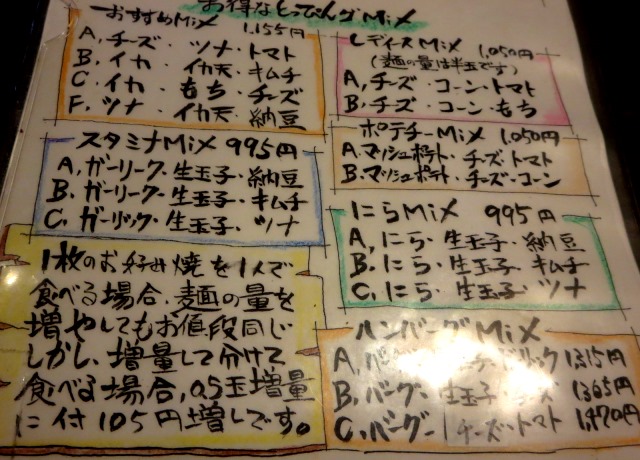 お得なとっぴんぐMix
おすすめMix 1,155円
A, チーズ・ツナ・トマト
B. イカ・イカ天・キムチ
C. イカ・もち・チーズ
F. ツナ・イカ天・納豆
スタミナMix 995円
A, ガーリーク・生玉子・納豆
B. ガーリーク・生玉子・キムチ
C, ガーリック・生玉子・ツナ
1枚のお好み焼を1人で
食べる場合、麺の量を
増やしてもお値段同じ
しかし、増量して分けて
食べる場合、0.5玉増量
に付105円増しです。
レディースMix 1,050円
(麺の量は半玉です)
A, チーズ・コーン・トマト
B. チーズ・コーン・もち
ポテチーMix 1,050円
A. マッシュポテト・チーズ・トマト
B. マッシュポテト・チーズ・コーン
にらMix 995円
A, にら・生玉子・納豆
B. にら・生玉子・キムチ
C, にら・生玉子・ツナ
ハンバーグMix
A, 1315円
B, バーグ・生玉子・チーズ 1365円
C, バーグ・チーズ・トマト 1,470円